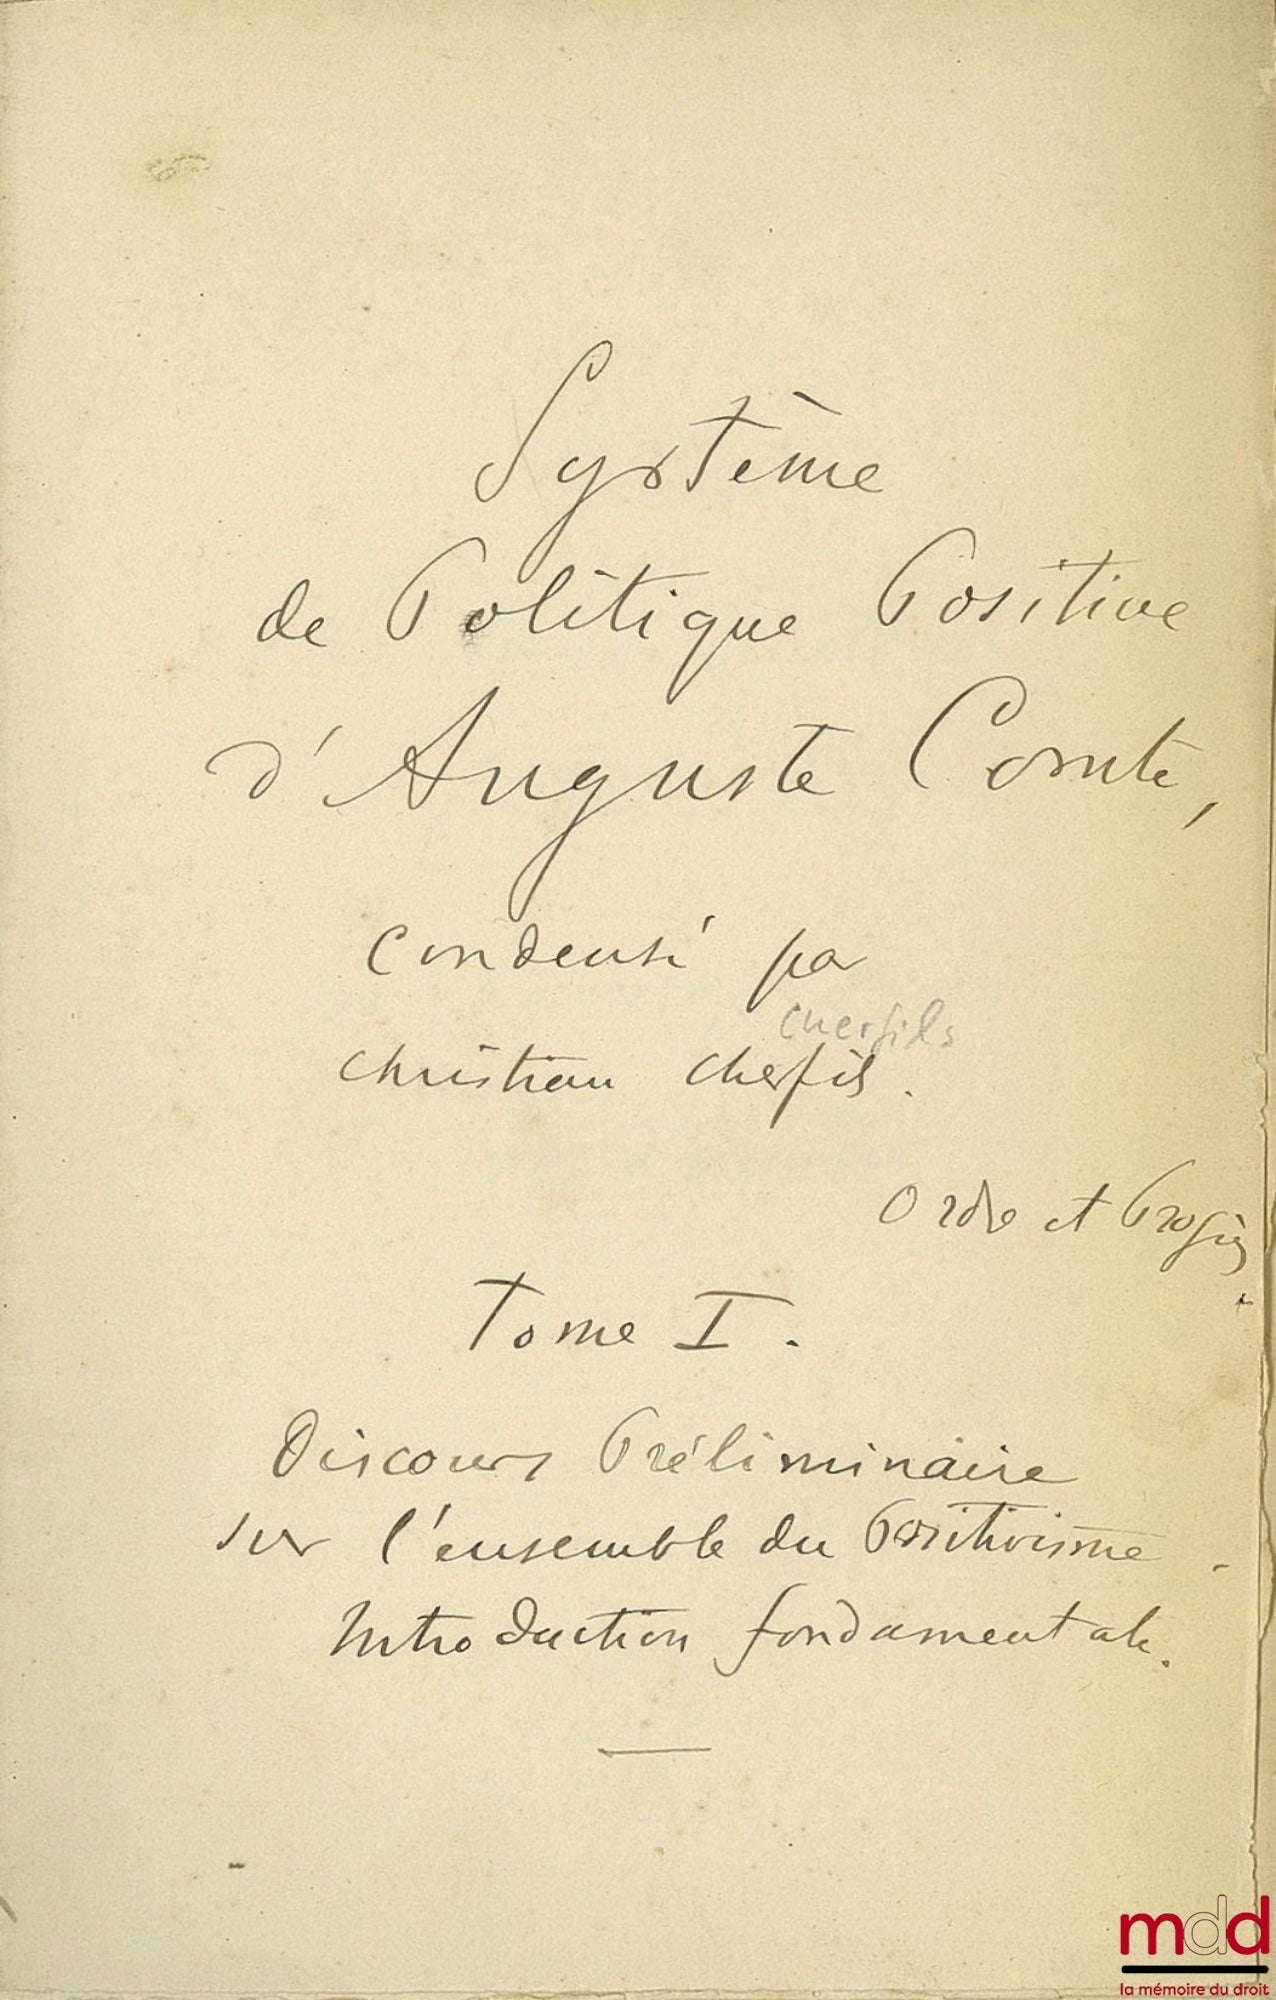 Système
de Politique Positive
d'Auguste Comte,
condensé par
cherfils
christian cherfils.
Ordre et Progrès.
Tome I.
Discours Préliminaire
sur l'ensemble du Positivisme.
Introduction fondamentale.
mdd
la mémoire du droit